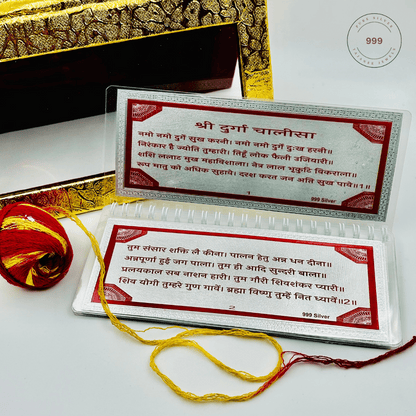 999
श्री दुर्गा चालीसा
नमो नमो दुर्गे सुख करनी। नमो नमो दुर्गे दुःख हरनी॥
निरंकार है ज्योति तुम्हारी। तिहूँ लोक फैली उजियारी॥
शशि ललाट मुख महाविशाला। नेत्र लाल भृकुटि विकराला॥
रूप मातु को अधिक सुहावे। दरश करत जन अति सुख पावे॥1॥
1
999 Silver
तुम संसार शक्ति लै कीना। पालन हेतु अन्न धन दीना॥
अन्नपूर्णा हुई जग पाला। तुम ही आदि सुन्दरी बाला॥
प्रलयकाल सब नाशन हारी। तुम गौरी शिवशंकर प्यारी॥
शिव योगी तुम्हरे गुण गावें। ब्रह्मा विष्णु तुम्हें नित ध्यावें॥2॥
2
999 Silver